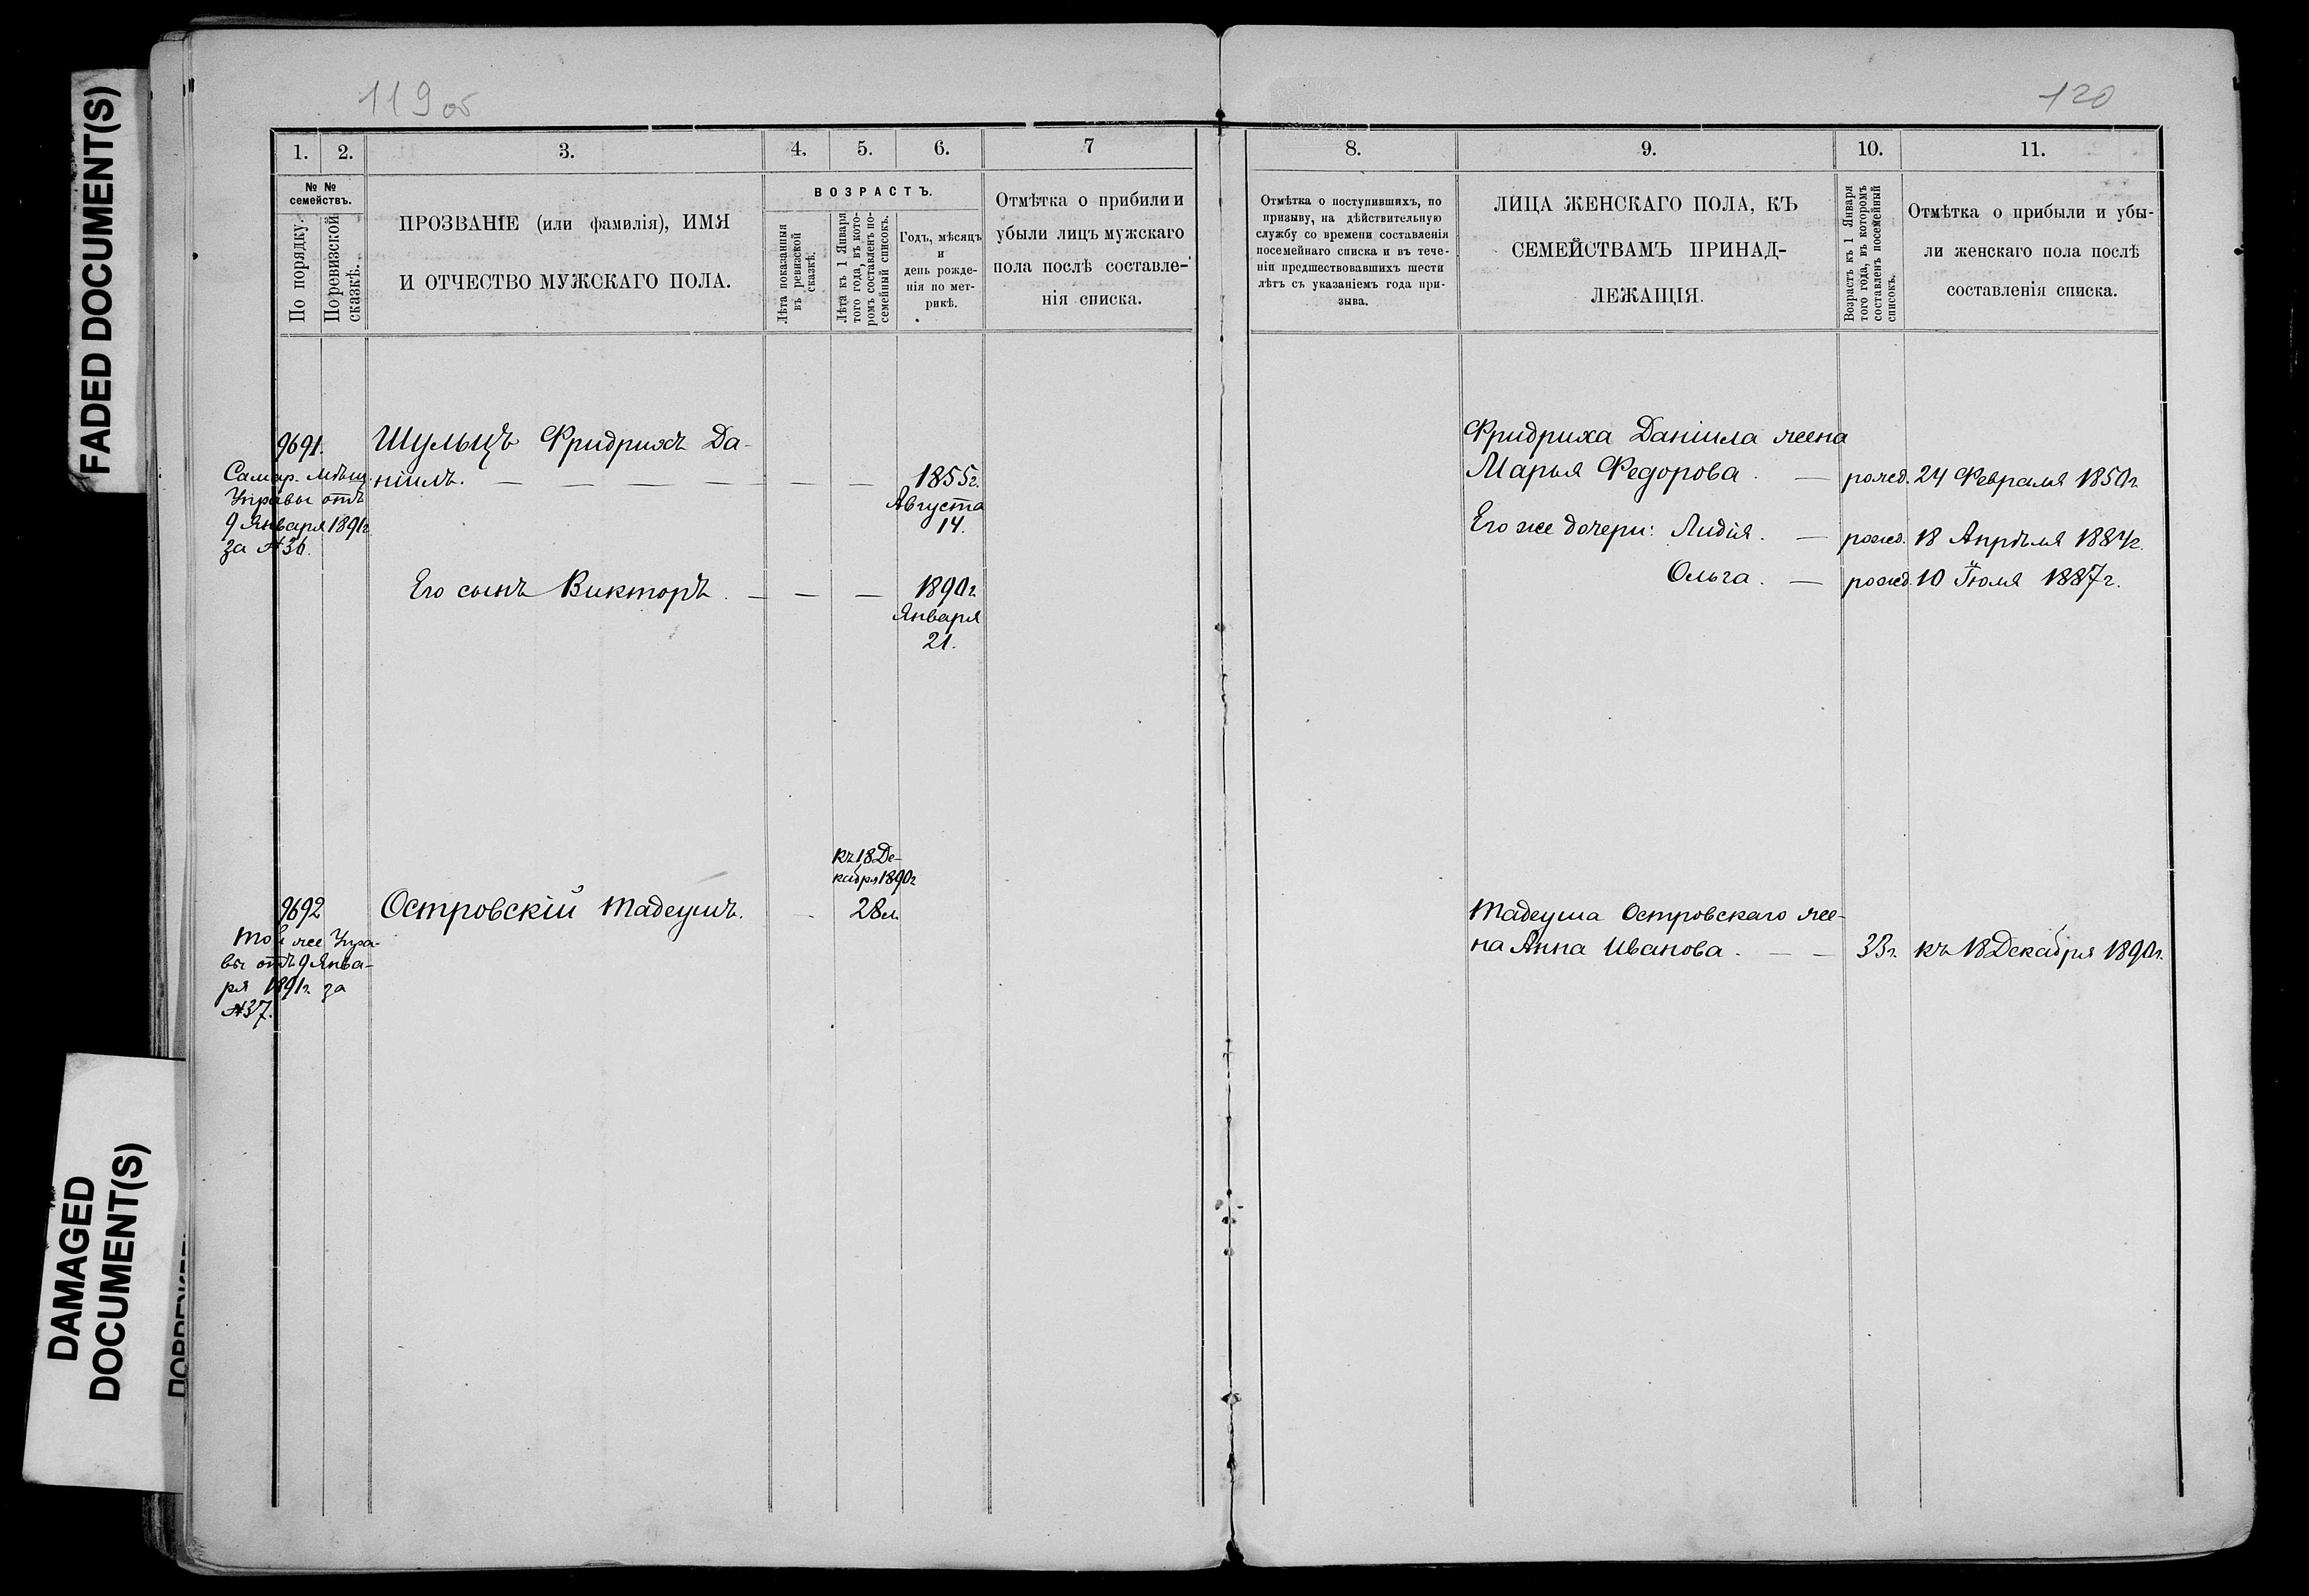 FADED DOCUMENT(S)
DAMAGED
DOCUMENT(S)
119 об
1. 2. 3. 4. 5. 6. 7
№ №
семействъ.
По порядку.
По ревизской
сказкѣ.
ПРОЗВАНІЕ (или фамилія), ИМЯ
И ОТЧЕСТВО МУЖСКАГО ПОЛА.
ВОЗРАСТЪ.
Лѣта показанныя
въ ревизской
сказкѣ.
Лѣта къ 1 Января
того года, въ кото-
ромъ составленъ по-
семейный списокъ.
Годъ, мѣсяцъ
и
день рожде-
нія по мет-
рикѣ.
Отмѣтка о прибыли и
убыли лицъ мужскаго
пола послѣ составле-
нія списка.
9691.
Самар. Мѣщ.
Управы отъ
9 Января 1891г.
за №36.
Шульцъ Фридрихъ Да-
ніилъ.
1855г.
Августа
14.
Его сынъ Викторъ.
1890г.
Января
21.
къ 18 Де-
кабря 1890г
9692
Той же Упра-
вы отъ 9 Янва-
ря 1891г. за
№37.
Островскій Тадеушъ.
28л.
120
8. 9. 10. 11.
Отмѣтка о поступившихъ, по
призыву, на дѣйствительную
службу со времени составленія
посемейнаго списка и въ тече-
ніи предшествовавшихъ шести
лѣтъ съ указаніемъ года при-
зыва.
ЛИЦА ЖЕНСКАГО ПОЛА, КЪ
СЕМЕЙСТВАМЪ ПРИНАД-
ЛЕЖАЩІЯ.
Возрастъ къ 1 Января
того года, въ которомъ
составленъ посемейный
списокъ.
Отмѣтка о прибыли и убы-
ли женскаго пола послѣ
составленія списка.
Фридриха Даніила жена
Марья Федорова. — рожд. 24 Февраля 1850г.
Его же дочери: Лидія. — рожд. 18 Апрѣля 1884г.
Ольга. — рожд. 10 Іюля 1887г.
Тадеуша Островскаго же-
на Анна Иванова. — — 33г. къ 18 Декабря 1890г.